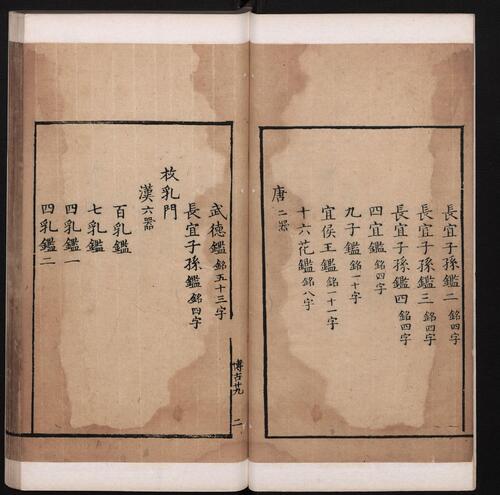 長宜子孫鑑二 銘四字
長宜子孫鑑三 銘四字
長宜子孫鑑四 銘四字
四宜鑑 銘四字
九子鑑 銘一十字
宜侯王鑑 銘一十一字
十六花鑑 銘八字
唐 二器
武德鑑 銘五十三字
長宜子孫鑑 銘四字
枚乳門
漢 六器
百乳鑑
七乳鑑
四乳鑑一
四乳鑑二
博古廿九 二